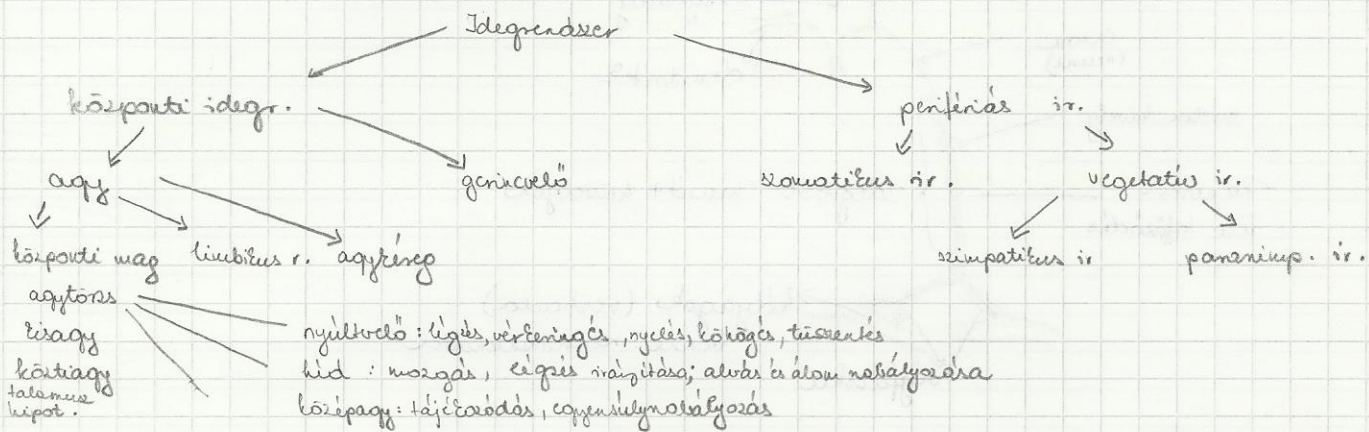 Idegrendszer
központi idegr. perifériás ir.
agy gerincvelő szomatikus ir. vegetatív ir.
központi mag limbikus r. agykéreg szimpatikus ir paraszimp. ir.
agytörzs
kisagy nyúltvelő: légzés, vérkeringés, nyelés, köhögés, tüsszentés
köztiagy híd: mozgás, légzés irányítása; alvás és álom szabályozása
talamusz
hipot. középagy: tájékozódás, egyensúlyszabályozás